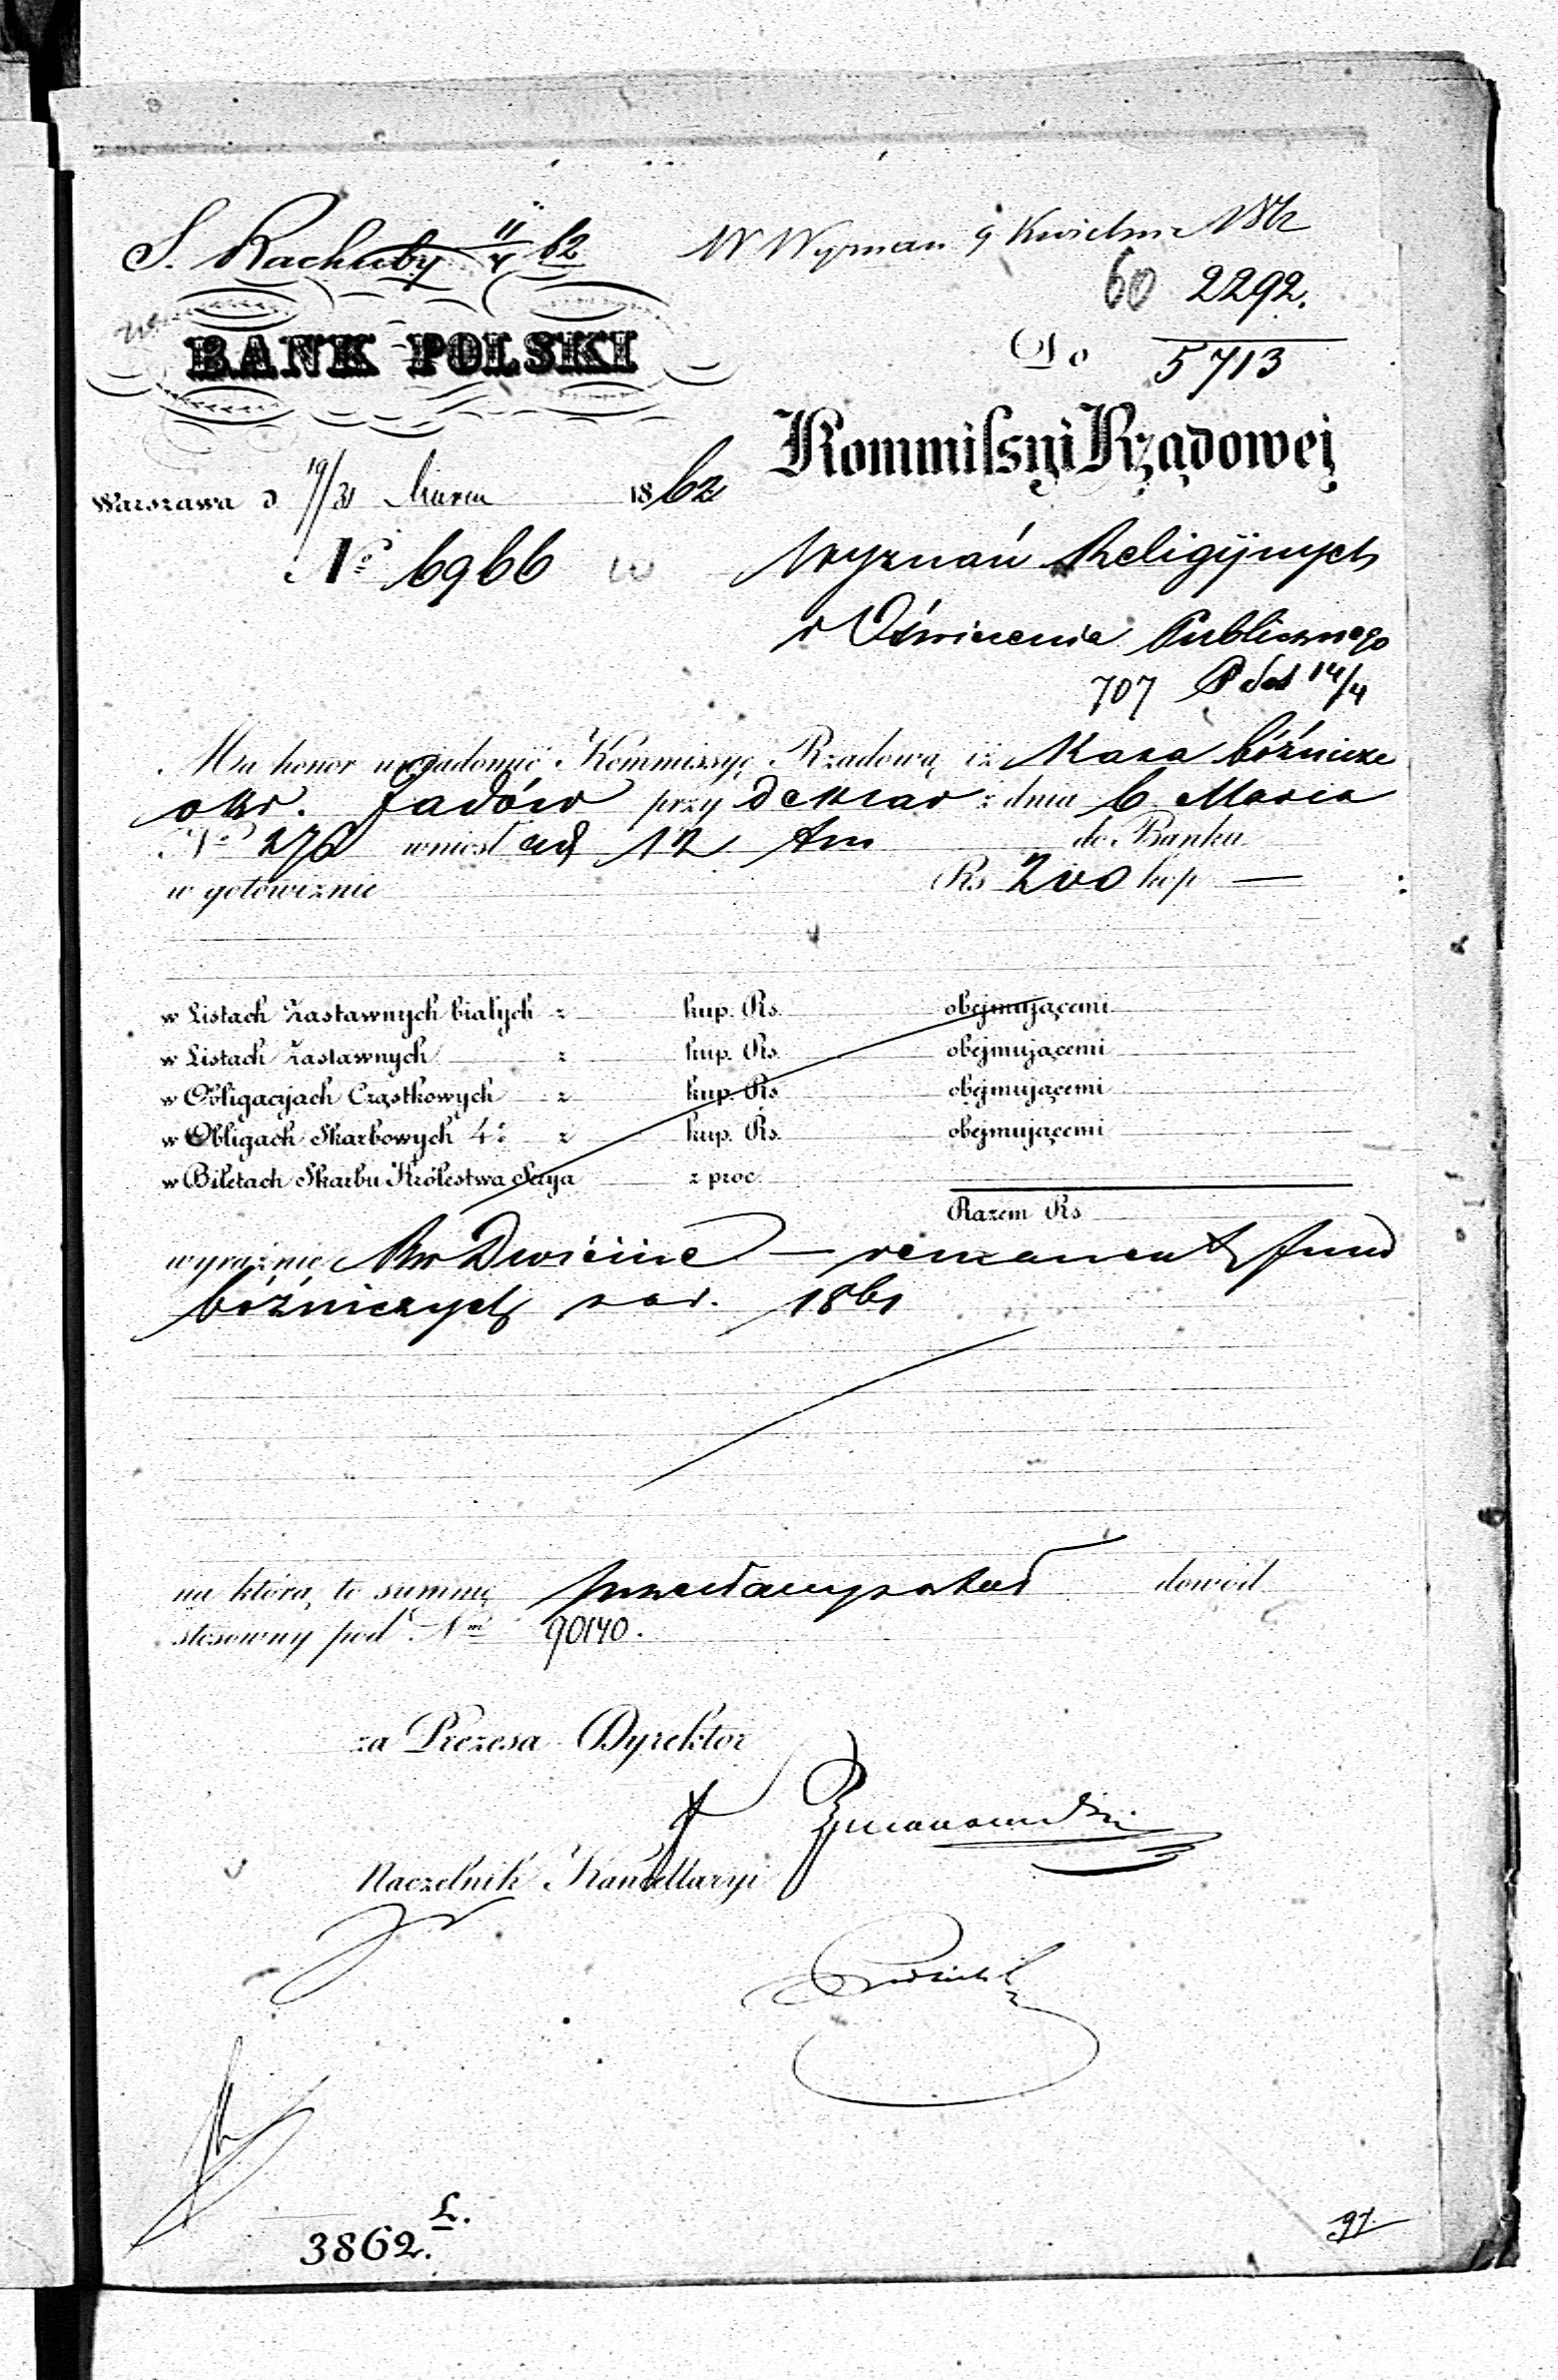 S. Rachuby 11/4 62
W Wyznań 9 Kwietnia 1862
60 2292.
BANK POLSKI
Do 5713
Kommissyi Rządowej
Warszawa d 19/31 Marca 1862
№ 6966
Wyznań Religijnych
i Oświecenia Publicznego
707 14/4
Ma honor uwiadomić Kommissyę Rządową iż Kasa bóżnicza
okr. Jadów przy deklar z dnia 6 Marca
№ 276 wniosła 12 tm do Banku
w gotowiznie Rs 200 kop —
w Listach Zastawnych białych z kup. Rs. obejmującemi
w Listach Zastawnych z kup. Rs. obejmującemi
w Obligacjach Cząstkowych z kup. Rs. obejmującemi
w Obligach Skarbowych 4% z kup. Rs. obejmującemi
w Biletach Skarbu Królestwa Serya z proc.
Razem Rs
wyraźnie Rsr Dwieście — remanent fund
bóżniczych za r. 1861
na którą to summę dowód
stosowny pod Nm 90140.
za Prezesa Dyrektor
Naczelnik Kancellaryi
L.
3862.
97